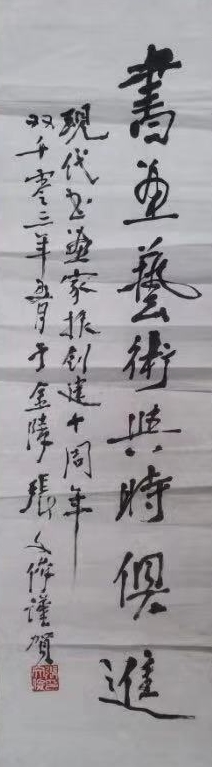 書畫藝術與時俱進
現代書畫家報創建十周年
双千零三年五月于金陵張文俊謹賀